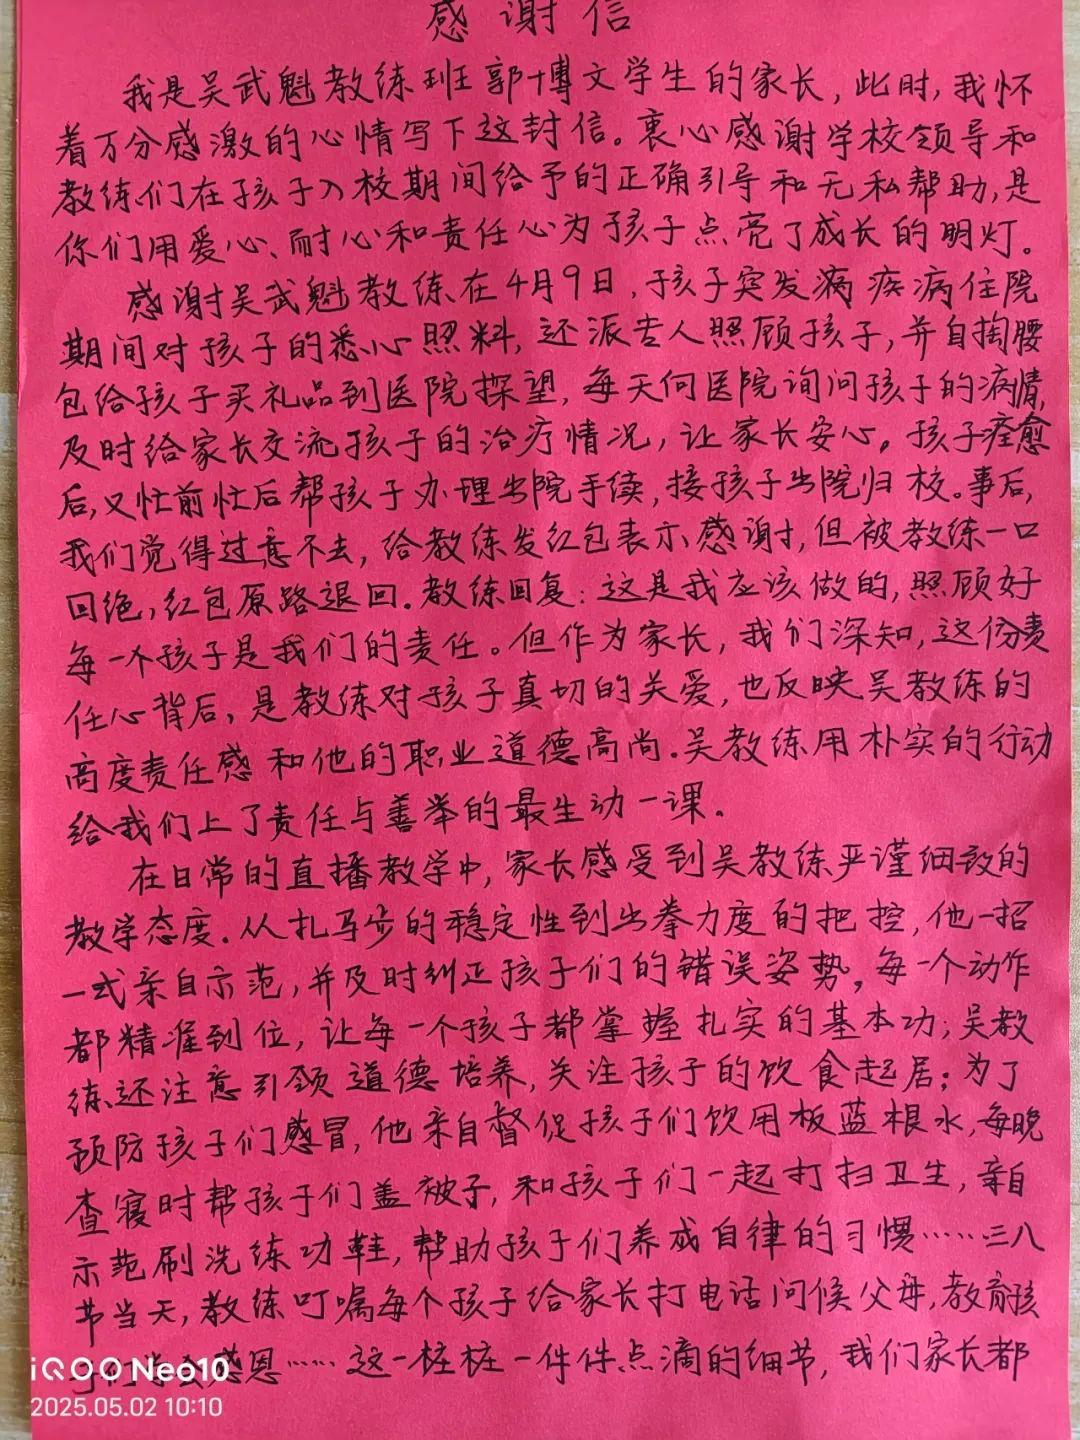 感谢信
我是吴武魁教练班郭博文学生的家长，此时，我怀
着万分感激的心情写下这封信。衷心感谢学校领导和
教练们在孩子入校期间给予的正确引导和无私帮助，是
你们用爱心、耐心和责任心为孩子点亮了成长的明灯。
感谢吴武魁教练在4月9日，孩子突发病疾病住院
期间对孩子的悉心照料，还派专人照顾孩子，并自掏腰
包给孩子买礼品到医院探望，每天向医院询问孩子的病情，
及时给家长交流孩子的治疗情况，让家长安心。孩子痊愈
后，又忙前忙后帮孩子办理出院手续，接孩子出院归校。事后，
我们觉得过意不去，给教练发红包表示感谢，但被教练一口
回绝，红包原路退回。教练回复：这是我应该做的，照顾好
每一个孩子是我们的责任。但作为家长，我们深知，这份责
任心背后，是教练对孩子真切的关爱，也反映吴教练的
高度责任感和他的职业道德高尚。吴教练用朴实的行动
给我们上了责任与善举的最生动一课。
在日常的直播教学中，家长感受到吴教练严谨细致的
教学态度。从扎马步的稳定性到出拳力度的把控，他一招
一式亲自示范，并及时纠正孩子们的错误姿势，每一个动作
都精准到位，让每一个孩子都掌握扎实的基本功；吴教
练还注意引领道德培养，关注孩子的饮食起居；为了
预防孩子们感冒，他亲自督促孩子们饮用板蓝根水，每晚
查寝时帮孩子们盖被子，和孩子们一起打扫卫生，亲自
示范刷洗练功鞋，帮助孩子们养成自律的习惯……三八
节当天，教练叮嘱每个孩子给家长打电话问候父母，教育孩
子们学会感恩……这一桩桩一件件点滴的细节，我们家长都
iQOO Neo10
2025.05.02 10:10